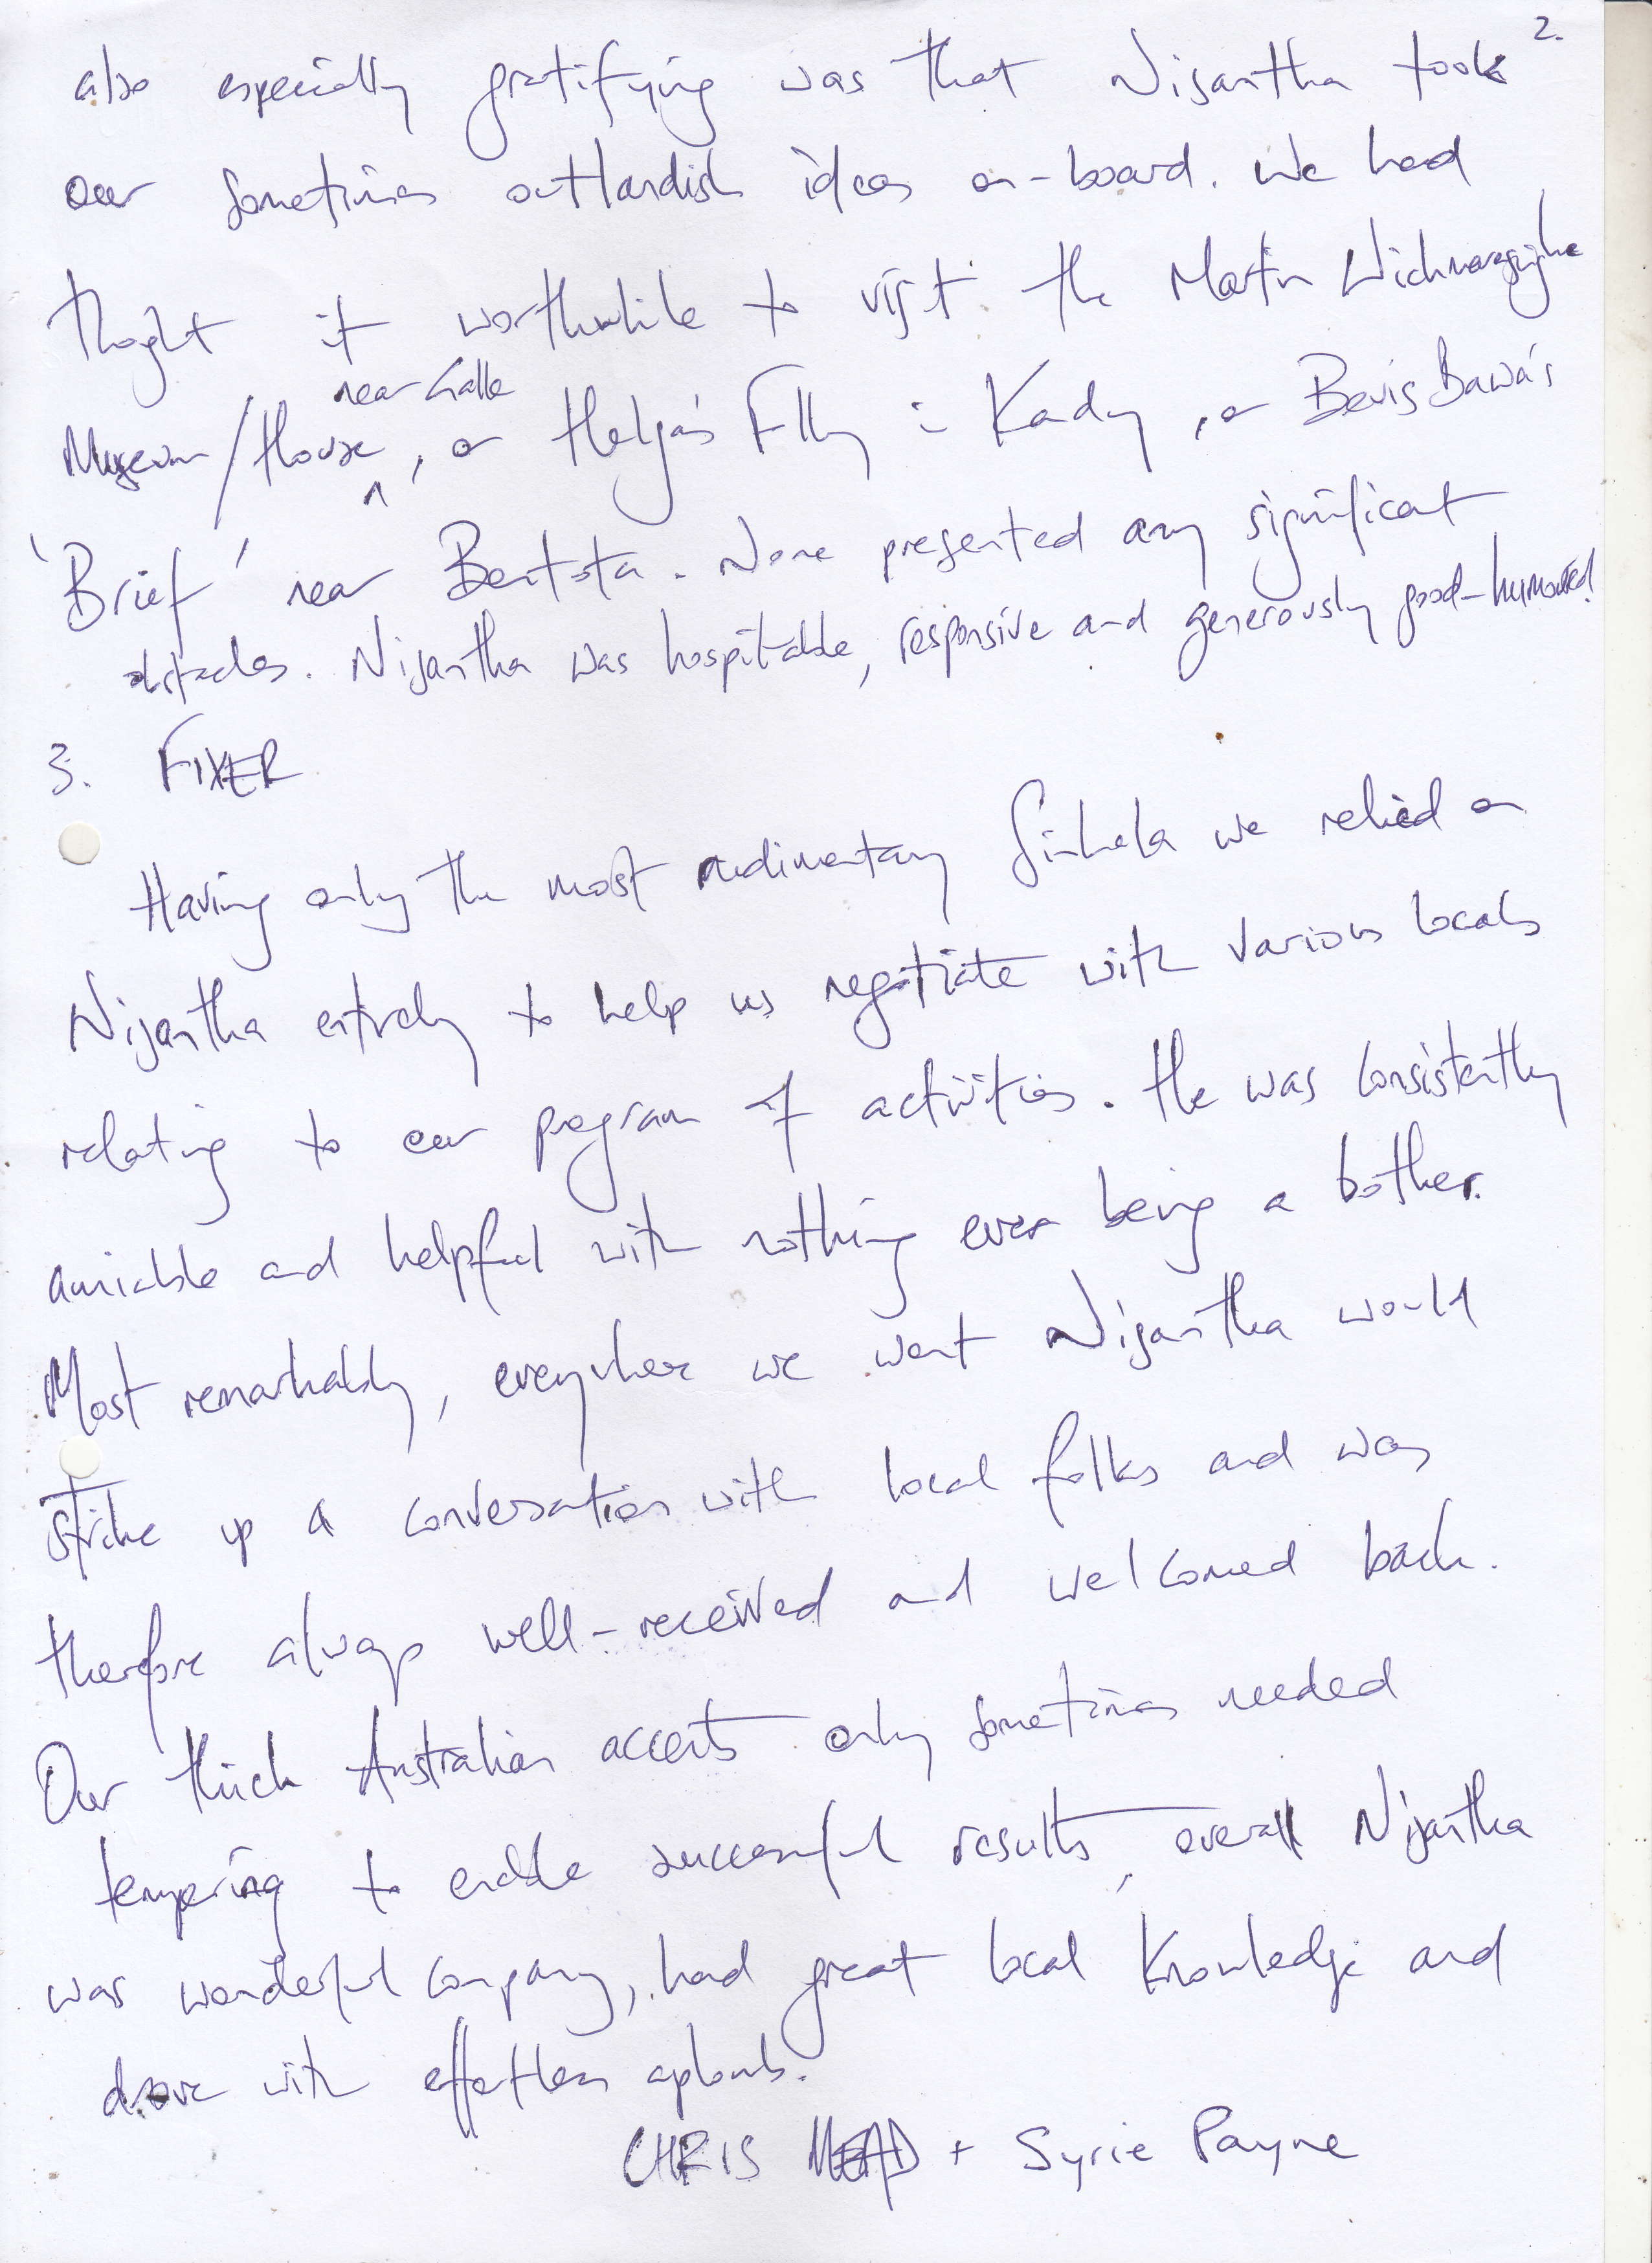 2.
also especially gratifying was that Nisantha took
our sometimes outlandish ideas on-board. We had
thought it worthwhile to visit the Martin Wickramasinghe
near Galle
Museum/House, or Helga's Folly in Kandy, or Bevis Bawa's
'Brief' near Bentota. None presented any significant
obstacles. Nisantha was hospitable, responsive and generously good-humoured!
3. FIXER
Having only the most rudimentary Sinhala we relied on
Nisantha entirely to help us negotiate with various locals
relating to our program of activities. He was consistently
amicable and helpful with nothing ever being a bother.
Most remarkably, everywhere we went Nisantha would
strike up a conversation with local folks and was
therefore always well-received and welcomed back.
Our thick Australian accents only sometimes needed
tempering to enable successful results, overall Nisantha
was wonderful company, had great local knowledge and
drove with effortless aplomb.
CHRIS MEAD + Syrie Payne